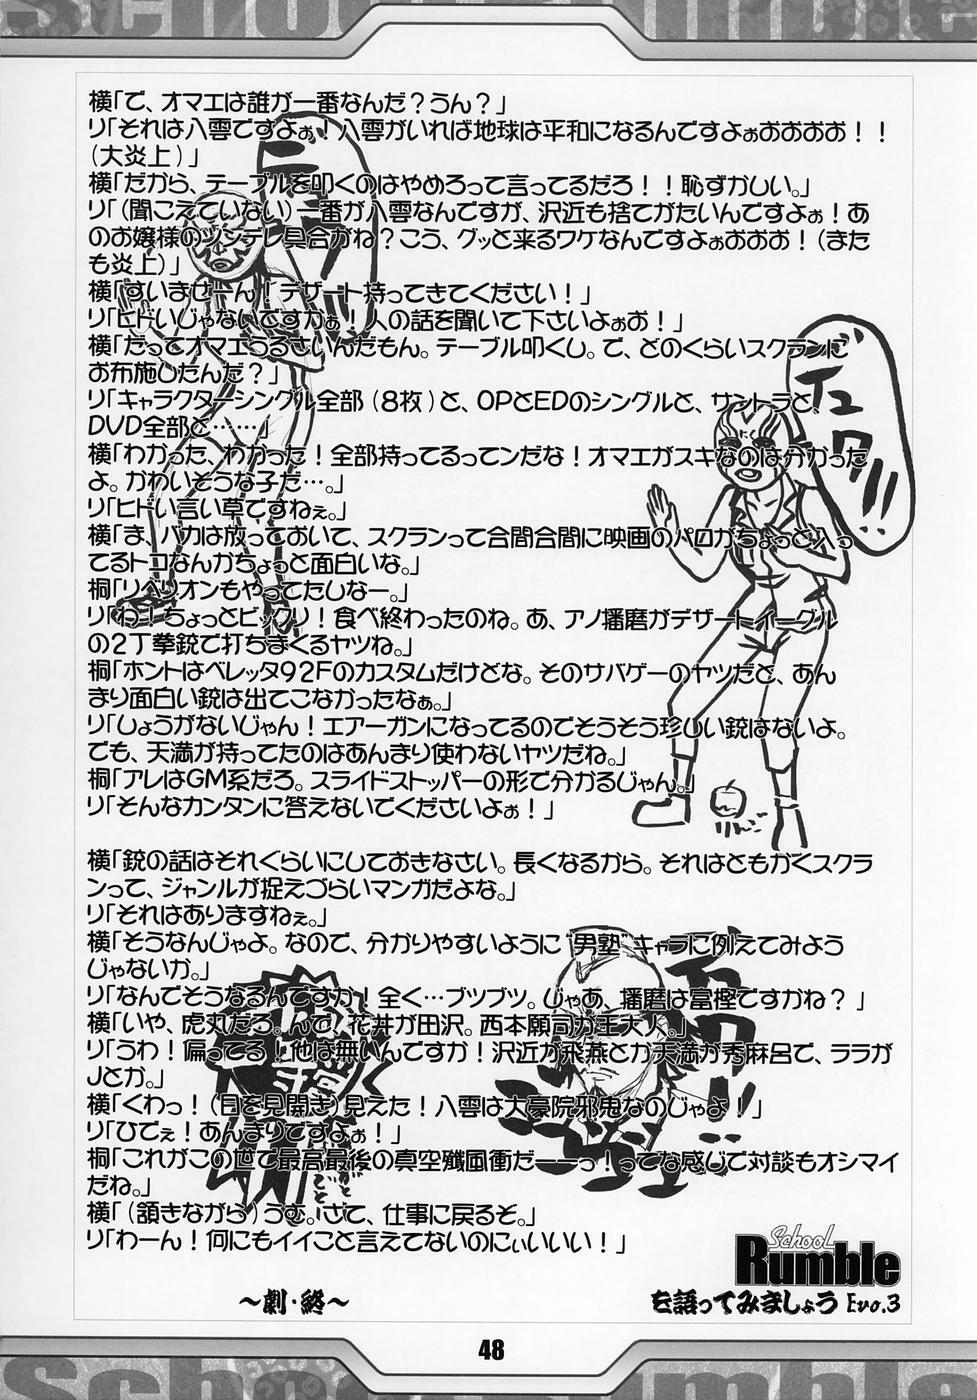 School Rumble
横「で、オマエは誰が一番なんだ？うん？」
リ「それは八雲ですよぉ！八雲がいれば地球は平和になるんですよぉおおおお！！
（大炎上）」
横「だから、テーブルを叩くのはやめろって言ってるだろ！！恥ずかしい。」
リ「（聞こえていない）一番が八雲なんですが、沢近も捨てがたいんですよぉ！あ
のお嬢様のツンデレ具合がね？こう、グッと来るワケなんですよぉおおお！（また
も炎上）」
横「すいませーん！デザート持ってきてください！」
リ「ヒドいじゃないですかぁ！人の話を聞いて下さいよぉお！」
横「だってオマエうるさいんだもん。テーブル叩くし。で、どのくらいスクランに
お布施したんだ？」
リ「キャラクターシングル全部（８枚）と、OPとEDのシングルと、サントラと、
DVD全部と……」
横「わかった、わかった！全部持ってるってンだな！オマエがスキなのは分かった
よ。かわいそうな子だ…。」
リ「ヒドい言い草ですねぇ。」
横「ま、バカは放っておいて、スクランって合間合間に映画のパロがちょっと入っ
てるトコなんかちょっと面白いな。」
桐「リベリオンもやってたしなー。」
リ「わ！ちょっとビックリ！食べ終わったのね。あ、アノ播磨がデザートイーグル
の２丁拳銃で打ちまくるヤツね。」
桐「ホントはベレッタ92Fのカスタムだけどな。そのサバゲーのヤツだと、あん
まり面白い銃は出てこなかったなぁ。」
リ「しょうがないじゃん！エアーガンになってるのでそうそう珍しい銃はないよ。
でも、天満が持ってたのはあんまり使わないヤツだね。」
桐「アレはGM系だろ。スライドストッパーの形で分かるじゃん。」
リ「そんなカンタンに答えないでくださいよぉ！」
りんご
にく
横「銃の話はそれぐらいにしておきなさい。長くなるから。それはともかくスクラ
ンって、ジャンルが捉えづらいマンガだよな。」
リ「それはありますねぇ。」
横「そうなんじゃよ。なので、分かりやすいように“男塾”キャラに例えてみよう
じゃないか。」
リ「なんでそうなるんですか！全く…ブツブツ。じゃあ、播磨は富樫ですかね？」
横「いや、虎丸だろ。んで、花井が田沢。西本願司が王大人。」
リ「うわ！偏ってる！他は無いんですか！沢近が飛燕とか天満が秀麻呂で、ララが
Jとか。」
横「くわっ！（目を見開き）見えた！八雲は大豪院邪鬼なのじゃよ！」
リ「ひでぇ！あんまりですよぉ！」
桐「これがこの世で最高最後の真空殲風衝だーーっ！ってな感じで対談もオシマイ
だね。」
横「（頷きながら）うむ。さて、仕事に戻るぞ。」
リ「わーん！何にもイイこと言えてないのにぃいいい！」
～劇・終～
School
Rumble
を語ってみましょう Evo.3
48
School Rumble